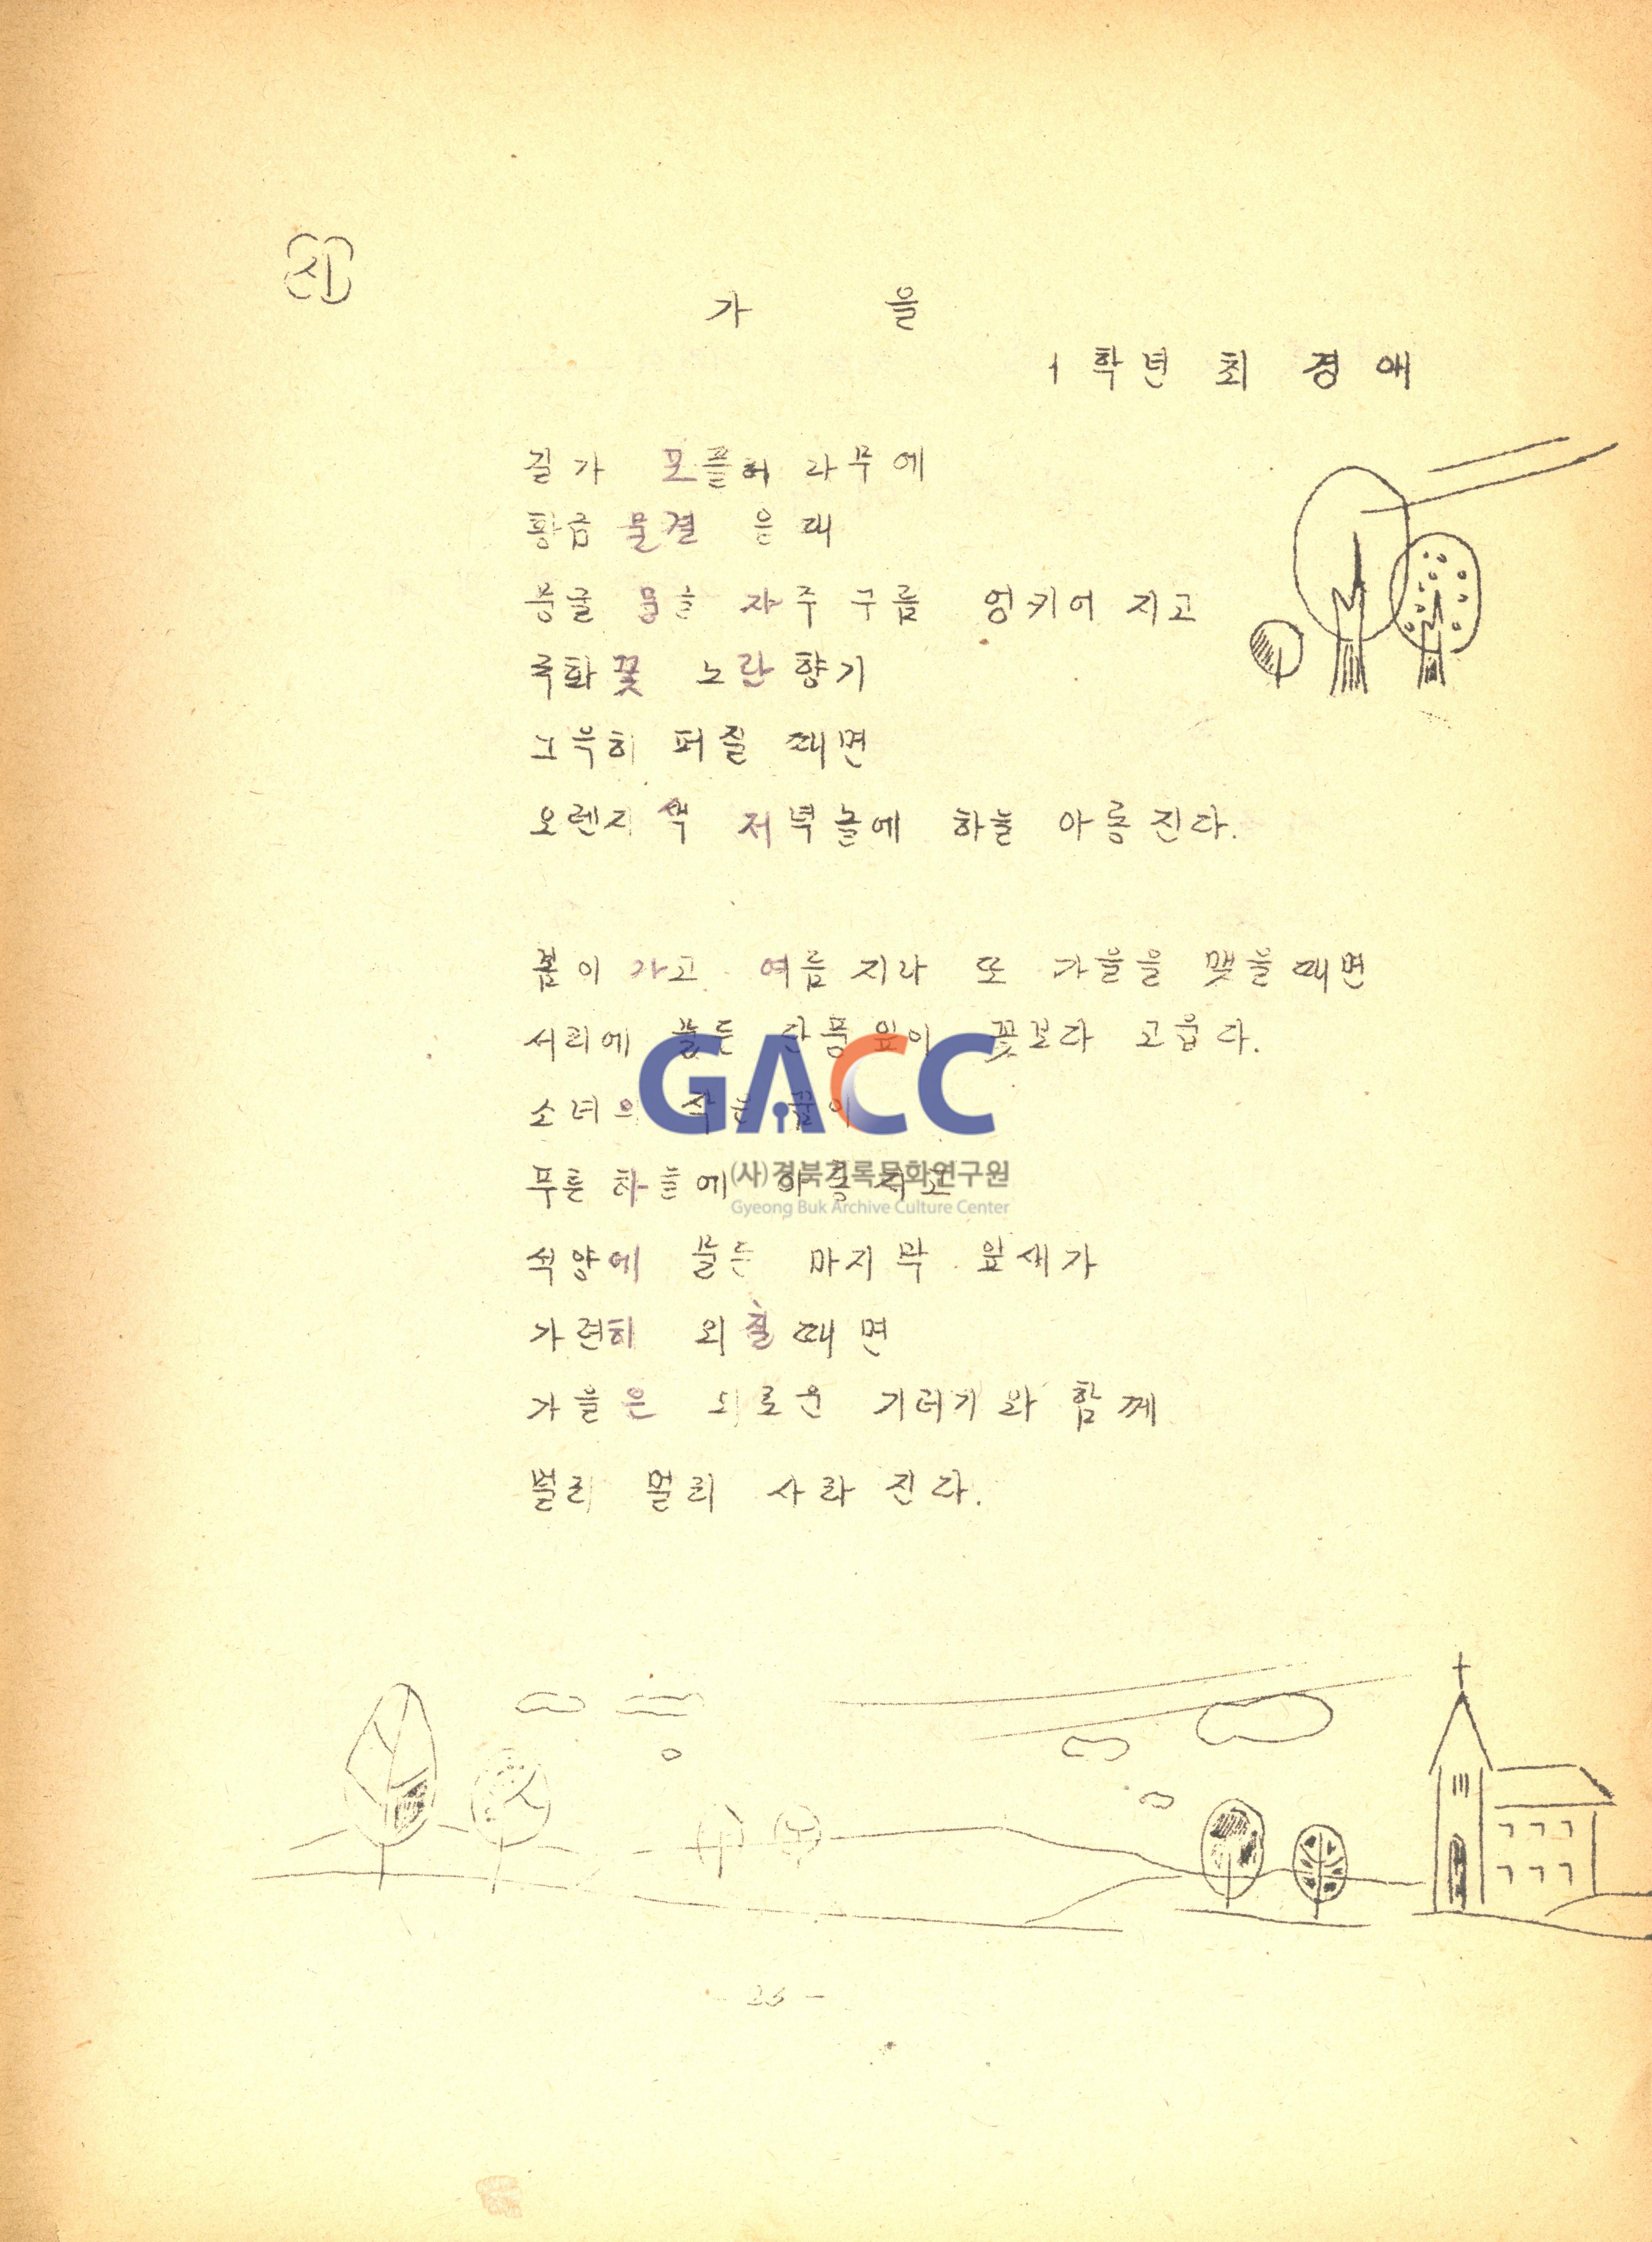 시
가 을
1학년 최 경애
길가 포플러 나무에
황금 물결 은때
뭉글 뭉글 자주 구름 엉키어 지고
국화꽃 노란향기
그윽히 퍼질 때면
오렌지색 저녁놀에 하늘 아롱진다.
봄이 가고 여름 지나 또 가을을 맺을때면
서리에 물든 단풍잎이 꽃보다 고웁다.
소녀의 작은 꿈이
푸른 하늘에 아롱지고
석양에 물든 마지막 잎새가
가련히 외칠때면
가을은 외로운 기러기와 함께
멀리 멀리 사라진다.
GACC
(사)경북기록문화연구원
Gyeong Buk Archive Culture Center
- 26 -